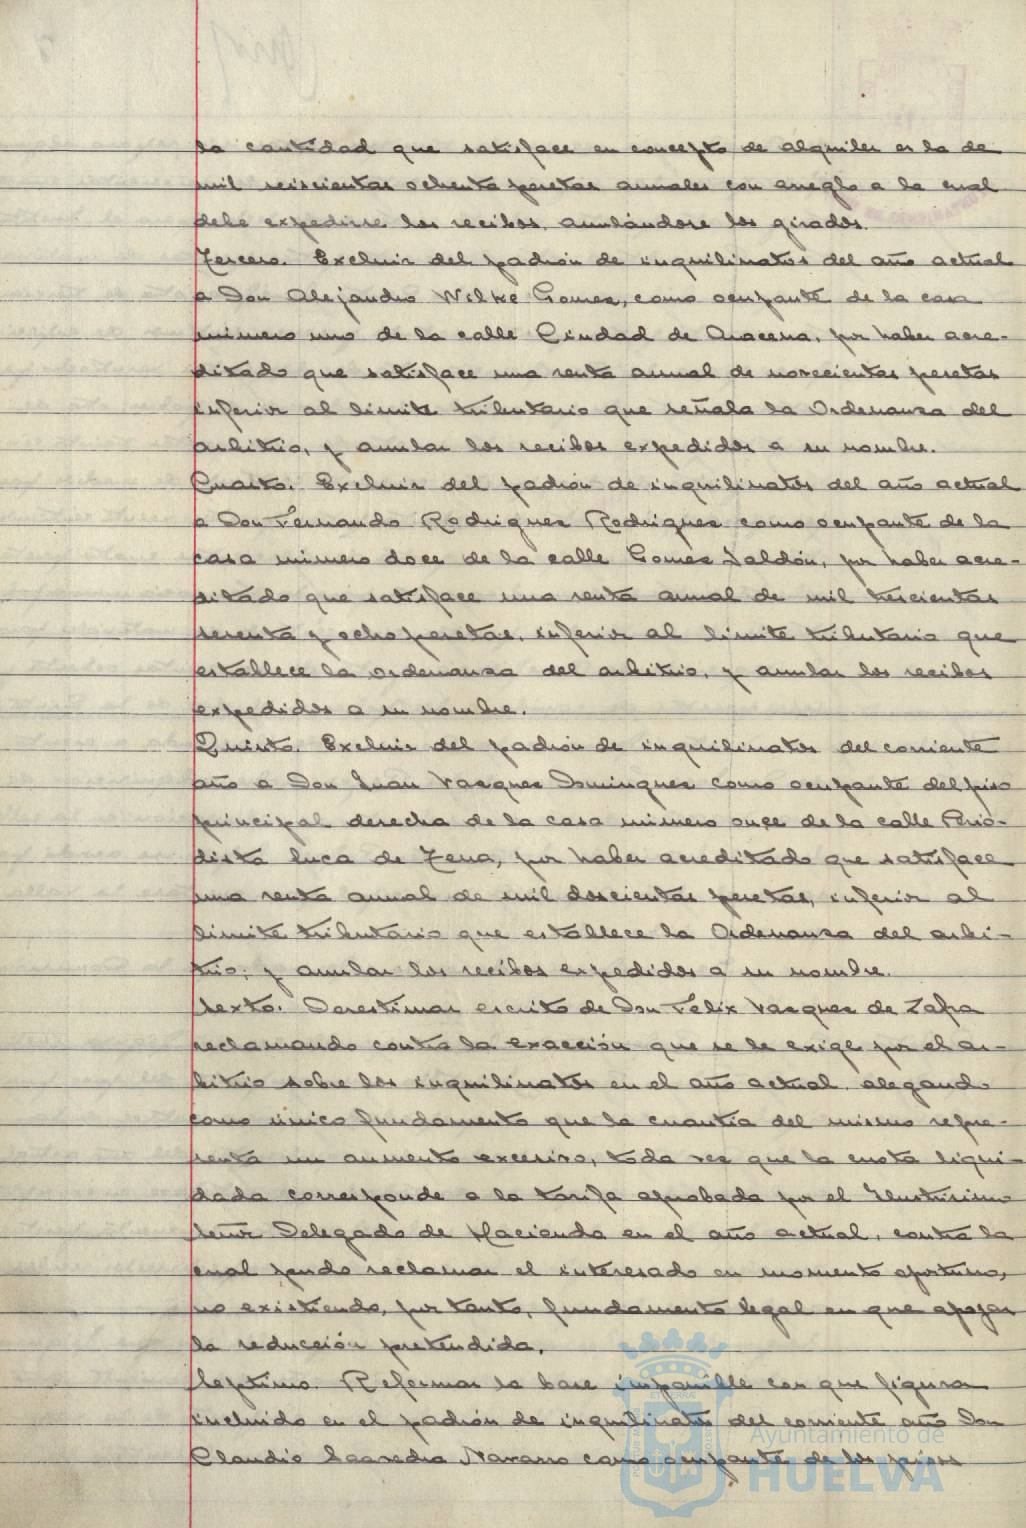 la cantidad que satisface en concepto de alquiler es la de
mil seiscientas ochenta pesetas anuales con arreglo a la cual
debe expedirse los recibos, anulándose los girados.
Tercero. Excluir del padrón de inquilinatos del año actual
a Don Alejandro Wilke Gomez, como ocupante de la casa
número uno de la calle Ciudad de Aracena, por haber acre-
ditado que satisface una renta anual de novecientas pesetas
inferior al limite tributario que señala la Ordenanza del
arbitrio, y anular los recibos expedidos a su nombre.
Cuarto. Excluir del padrón de inquilinatos del año actual
a Don Fernando Rodriguez Rodriguez como ocupante de la
casa número doce de la calle Gomez Jaldón, por haber acre-
ditado que satisface una renta anual de mil trescientas
sesenta y ocho pesetas, inferior al limite tributario que
establece la ordenanza del arbitrio, y anular los recibos
expedidos a su nombre.
Quinto. Excluir del padrón de inquilinatos del corriente
año a Don Juan Vazquez Dominguez como ocupante del piso
principal derecha de la casa número once de la calle Perio-
dista Luca de Tena, por haber acreditado que satisface
una renta anual de mil doscientas pesetas, inferior al
limite tributario que establece la Ordenanza del arbi-
trio; y anular los recibos expedidos a su nombre.
Sexto. Desestimar escrito de Don Felix Vazquez de Zafra
reclamando contra la exacción que se le exige por el ar-
bitrio sobre los inquilinatos en el año actual, alegando
como único fundamento que la cuantía del mismo repre-
senta un aumento excesivo, toda vez que la cuota liqui-
dada corresponde a la tarifa aprobada por el Ilustrísimo
Señor Delegado de Hacienda en el año actual, contra la
cual pudo reclamar el interesado en momento oportuno,
no existiendo, por tanto, fundamento legal en que apoyar
la reducción pretendida.
Septimo. Reformar la base imponible con que figura
incluido en el padrón de inquilinatos del corriente año Don
Claudio Saavedra Navarro como ocupante de los pisos
Ayuntamiento de
HUELVA